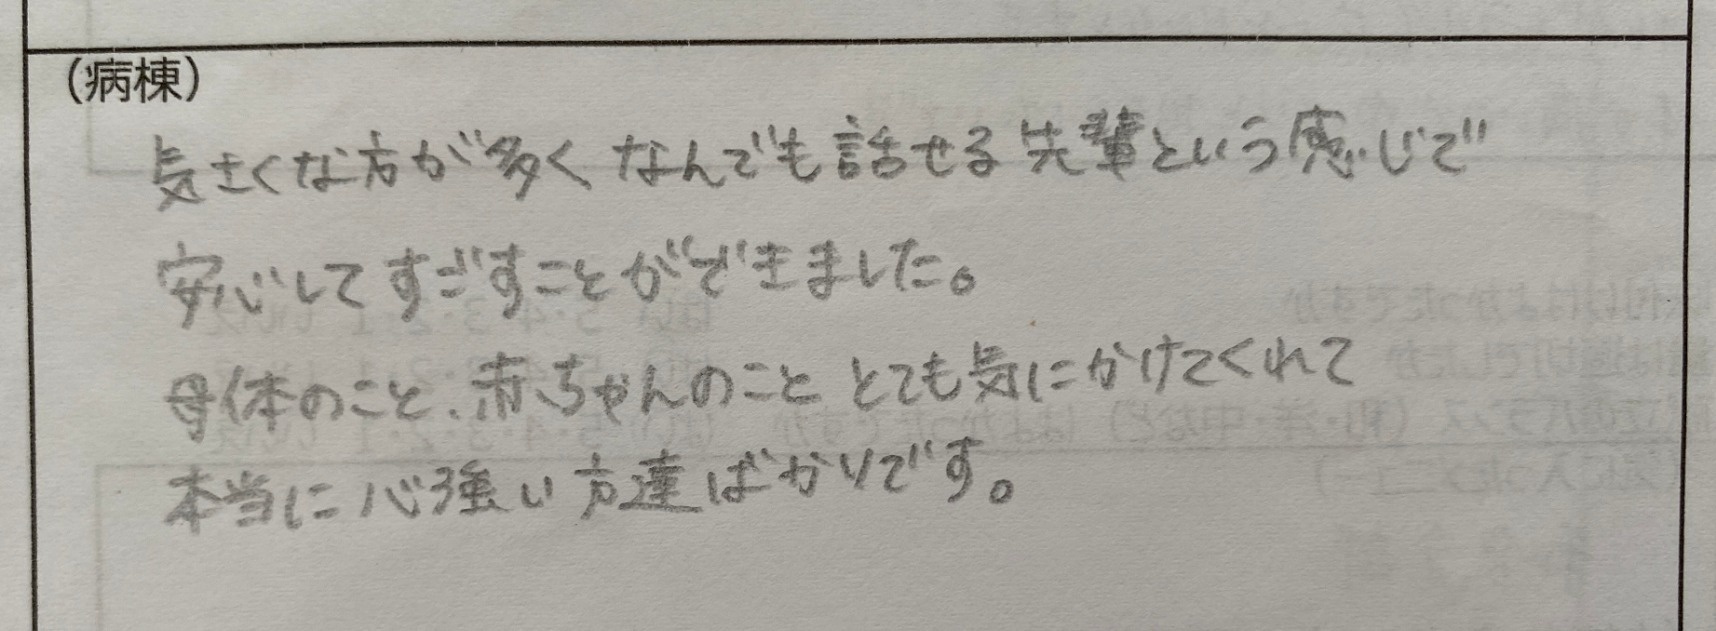 (病棟)
気さくな方が多く、なんでも話せる先輩という感じで
安心してすごすことができました。
母体のこと、赤ちゃんのこと とても気にかけてくれて
本当に心強い方達ばかりです。